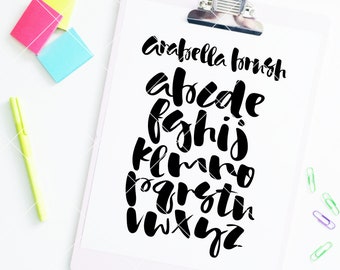 arabella brush
abcde
fghij
klmno
pqrstu
vwxyz